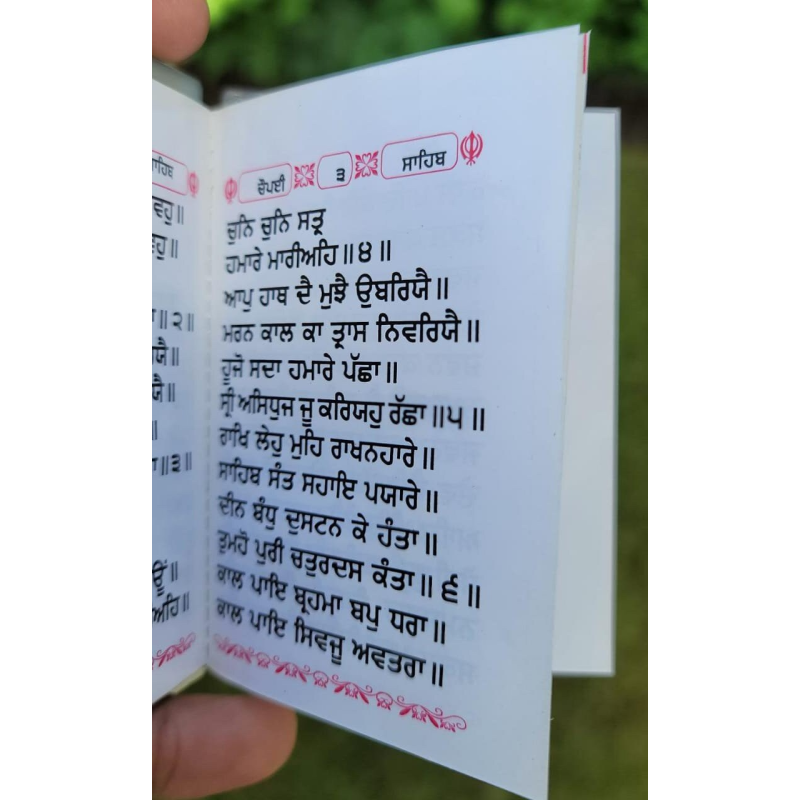 ਾਹਿਬ
ਵਹੁ॥
ਹੁ॥
॥੨॥
ਯੈ॥
ਯੈ॥
॥
॥੩॥
ਊਂ॥
ਅਹਿ॥
ਚੌਪਈ ੩ ਸਾਹਿਬ
ਚੁਨਿ ਚੁਨਿ ਸਤ੍ਰ
ਹਮਾਰੇ ਮਾਰੀਅਹਿ॥੪॥
ਆਪੁ ਹਾਥ ਦੈ ਮੁਝੈ ਉਬਰਿਯੈ॥
ਮਰਨ ਕਾਲ ਕਾ ਤ੍ਰਾਸ ਨਿਵਰਿਯੈ॥
ਹੂਜੋ ਸਦਾ ਹਮਾਰੇ ਪੱਛਾ॥
ਸ੍ਰੀ ਅਸਿਧੁਜ ਜੂ ਕਰਿਯਹੁ ਰੱਛਾ॥੫॥
ਰਾਖਿ ਲੇਹੁ ਮੁਹਿ ਰਾਖਨਹਾਰੇ॥
ਸਾਹਿਬ ਸੰਤ ਸਹਾਇ ਪਯਾਰੇ॥
ਦੀਨ ਬੰਧੁ ਦੁਸਟਨ ਕੇ ਹੰਤਾ॥
ਤੁਮਹੋ ਪੁਰੀ ਚਤੁਰਦਸ ਕੰਤਾ॥੬॥
ਕਾਲ ਪਾਇ ਬ੍ਰਹਮਾ ਬਪੁ ਧਰਾ॥
ਕਾਲ ਪਾਇ ਸਿਵਜੂ ਅਵਤਰਾ॥